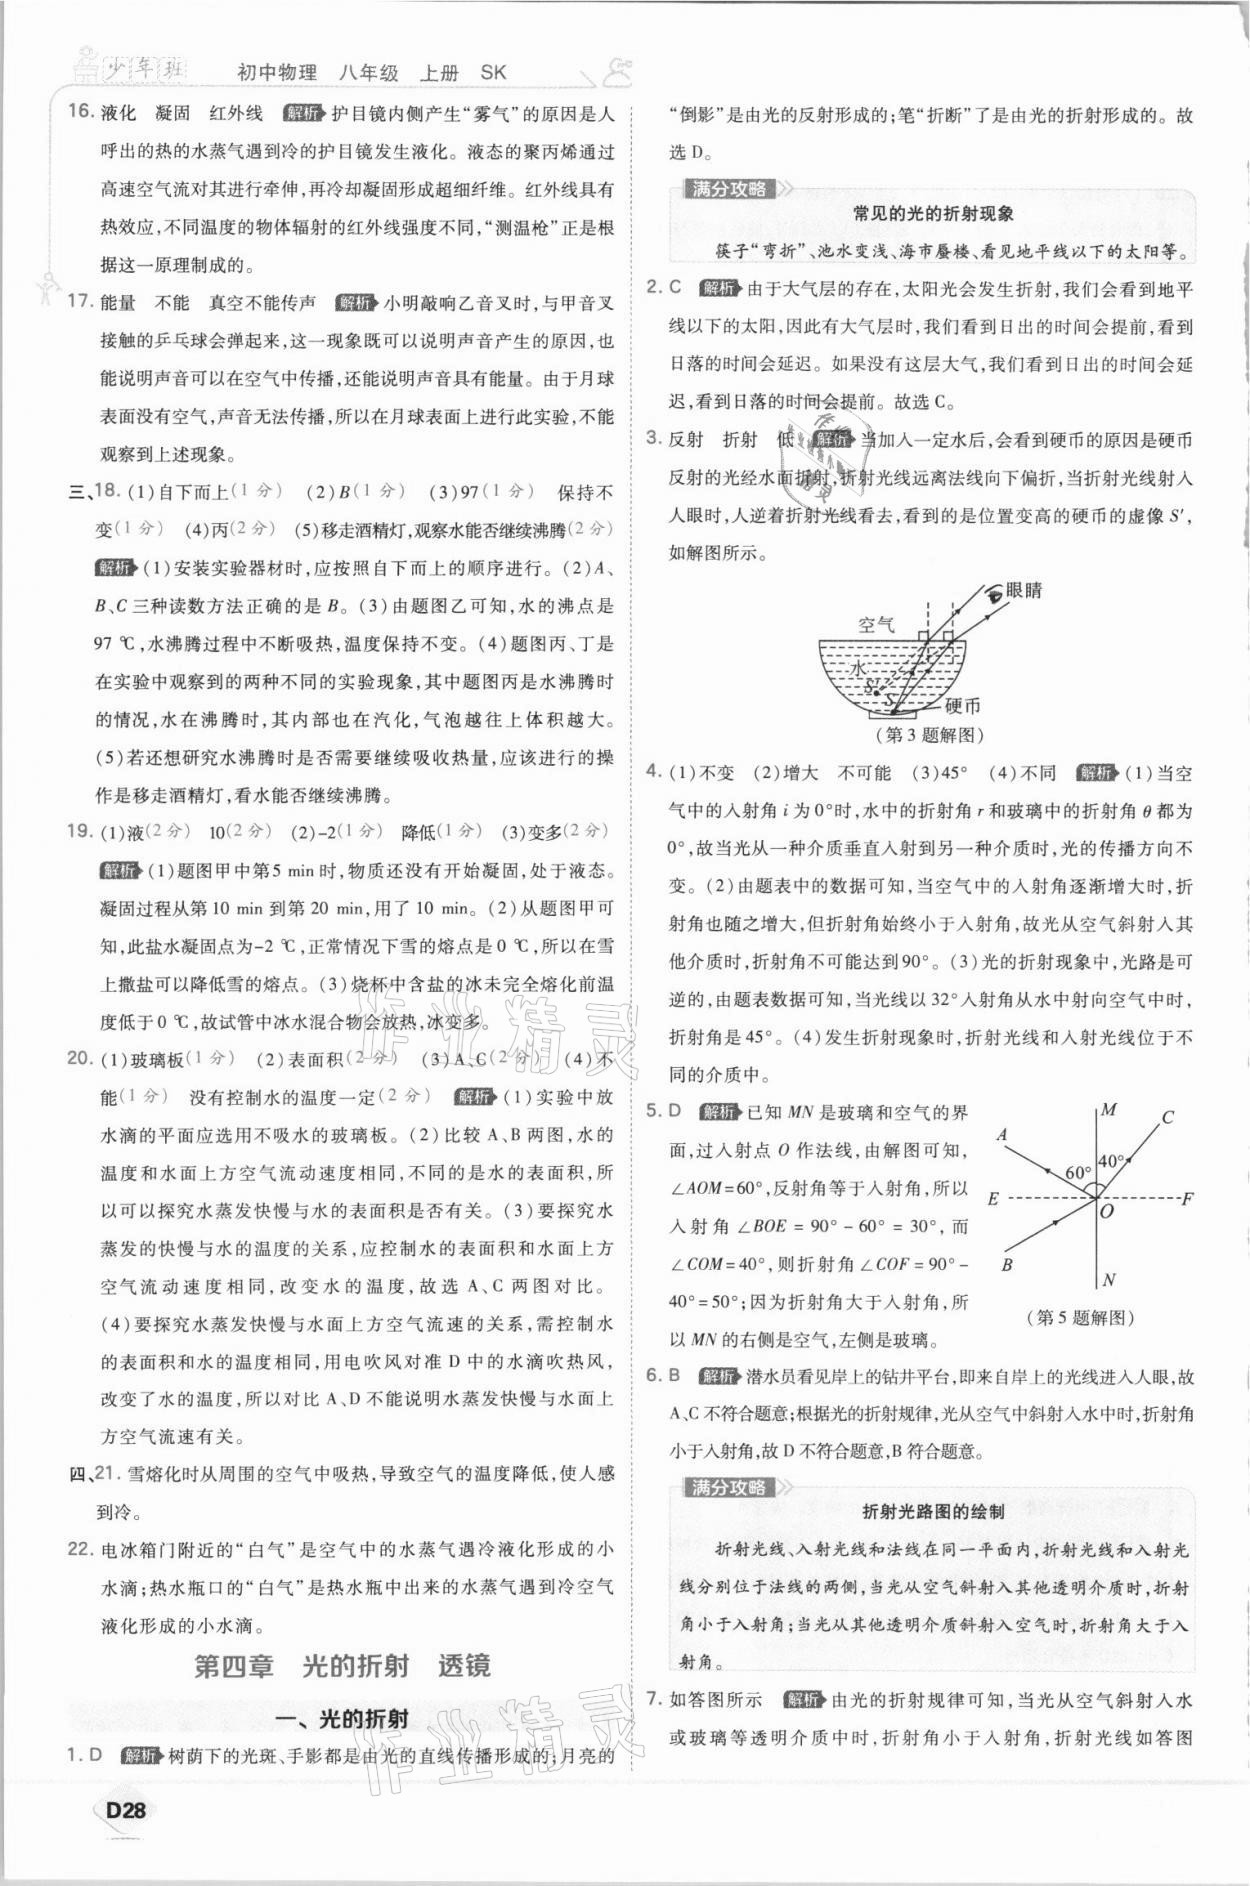 少年班 初中物理 八年级 上册 SK
16. 液化 凝固 红外线 解析 护目镜内侧产生“雾气”的原因是人
呼出的热的水蒸气遇到冷的护目镜发生液化。液态的聚丙烯通过
高速空气流对其进行牵伸,再冷却凝固形成超细纤维。红外线具有
热效应,不同温度的物体辐射的红外线强度不同,“测温枪”正是根
据这一原理制成的。
17. 能量 不能 真空不能传声 解析 小明敲响乙音叉时,与甲音叉
接触的乒乓球会弹起来,这一现象既可以说明声音产生的原因,也
能说明声音可以在空气中传播,还能说明声音具有能量。由于月球
表面没有空气,声音无法传播,所以在月球表面上进行此实验,不能
观察到上述现象。
三、18. (1)自下而上(1 分) (2)B(1 分) (3)97(1 分) 保持不
变(1 分) (4)丙(2 分) (5)移走酒精灯,观察水能否继续沸腾(2 分)
解析 (1)安装实验器材时,应按照自下而上的顺序进行。(2)A、
B、C三种读数方法正确的是 B。(3)由题图乙可知,水的沸点是
97 ℃,水沸腾过程中不断吸热,温度保持不变。(4)题图丙、丁是
在实验中观察到的两种不同的实验现象,其中题图丙是水沸腾时
的情况,水在沸腾时,其内部也在汽化,气泡越往上体积越大。
(5)若还想研究水沸腾时是否需要继续吸收热量,应该进行的操
作是移走酒精灯,看水能否继续沸腾。
19. (1)液(2 分) 10(2 分) (2)-2(1 分) 降低(1 分) (3)变多(2 分)
解析 (1)题图甲中第5 min时,物质还没有开始凝固,处于液态。
凝固过程从第 10 min 到第 20 min,用了 10 min。(2)从题图甲可
知,此盐水凝固点为-2 ℃,正常情况下雪的熔点是 0 ℃,所以在雪
上撒盐可以降低雪的熔点。(3)烧杯中含盐的冰未完全熔化前温
度低于0 ℃,故试管中冰水混合物会放热,冰变多。
20. (1)玻璃板(1 分) (2)表面积(2 分) (3)A、C(2 分) (4)不
能(1 分) 没有控制水的温度一定(2 分) 解析 (1)实验中放
水滴的平面应选用不吸水的玻璃板。(2)比较 A、B 两图,水的
温度和水面上方空气流动速度相同,不同的是水的表面积,所
以可以探究水蒸发快慢与水的表面积是否有关。(3)要探究水
蒸发的快慢与水的温度的关系,应控制水的表面积和水面上方
空气流动速度相同,改变水的温度,故选 A、C 两图对比。
(4)要探究水蒸发快慢与水面上方空气流速的关系,需控制水
的表面积和水的温度相同,用电吹风对准 D 中的水滴吹热风,
改变了水的温度,所以对比 A、D 不能说明水蒸发快慢与水面上
方空气流速有关。
四、21. 雪熔化时从周围的空气中吸热,导致空气的温度降低,使人感
到冷。
22. 电冰箱门附近的“白气”是空气中的水蒸气遇冷液化形成的小
水滴;热水瓶口的“白气”是热水瓶中出来的水蒸气遇到冷空气
液化形成的小水滴。
第四章 光的折射 透镜
一、光的折射
1. D 解析 树荫下的光斑、手影都是由光的直线传播形成的;月亮的
D28
“倒影”是由光的反射形成的;笔“折断”了是由光的折射形成的。故
选 D。
满分攻略
常见的光的折射现象
筷子“弯折”、池水变浅、海市蜃楼、看见地平线以下的太阳等。
2. C 解析 由于大气层的存在,太阳光会发生折射,我们会看到地平
线以下的太阳,因此有大气层时,我们看到日出的时间会提前,看到
日落的时间会延迟。如果没有这层大气,我们看到日出的时间会延
迟,看到日落的时间会提前。故选 C。
3. 反射 折射 低 解析 当加入一定水后,会看到硬币的原因是硬币
反射的光经水面折射,折射光线远离法线向下偏折,当折射光线射入
人眼时,人逆着折射光线看去,看到的是位置变高的硬币的虚像 S′,
如解图所示。
眼睛
空气
水
S′
S
硬币
(第 3 题解图)
4. (1)不变 (2)增大 不可能 (3)45° (4)不同 解析 (1)当空
气中的入射角 i 为 0°时,水中的折射角 r 和玻璃中的折射角 θ 都为
0°,故当光从一种介质垂直入射到另一种介质时,光的传播方向不
变。(2)由题表中的数据可知,当空气中的入射角逐渐增大时,折
射角也随之增大,但折射角始终小于入射角,故光从空气斜射入其
他介质时,折射角不可能达到90°。(3)光的折射现象中,光路是可
逆的,由题表数据可知,当光线以 32°入射角从水中射向空气中时,
折射角是 45°。(4)发生折射现象时,折射光线和入射光线位于不
同的介质中。
5. D 解析 已知 MN 是玻璃和空气的界
面,过入射点 O 作法线,由解图可知,
∠AOM=60°,反射角等于入射角,所以
入射角 ∠BOE = 90° - 60° = 30°,而
∠COM=40°,则折射角∠COF=90°-
40°=50°;因为折射角大于入射角,所
以 MN 的右侧是空气,左侧是玻璃。
M
A
C
60°
40°
E
F
O
B
N
(第 5 题解图)
6. B 解析 潜水员看见岸上的钻井平台,即来自岸上的光线进入人眼,故
A、C 不符合题意;根据光的折射规律,光从空气中斜射入水中时,折射角
小于入射角,故 D 不符合题意,B 符合题意。
满分攻略
折射光路图的绘制
折射光线、入射光线和法线在同一平面内,折射光线和入射光
线分别位于法线的两侧,当光从空气斜射入其他透明介质时,折射
角小于入射角;当光从其他透明介质斜射入空气时,折射角大于入
射角。
7. 如答图所示 解析 由光的折射规律可知,当光从空气斜射入水
或玻璃等透明介质中时,折射角小于入射角,折射光线如答图
作业精灵
作业精灵
作业精灵